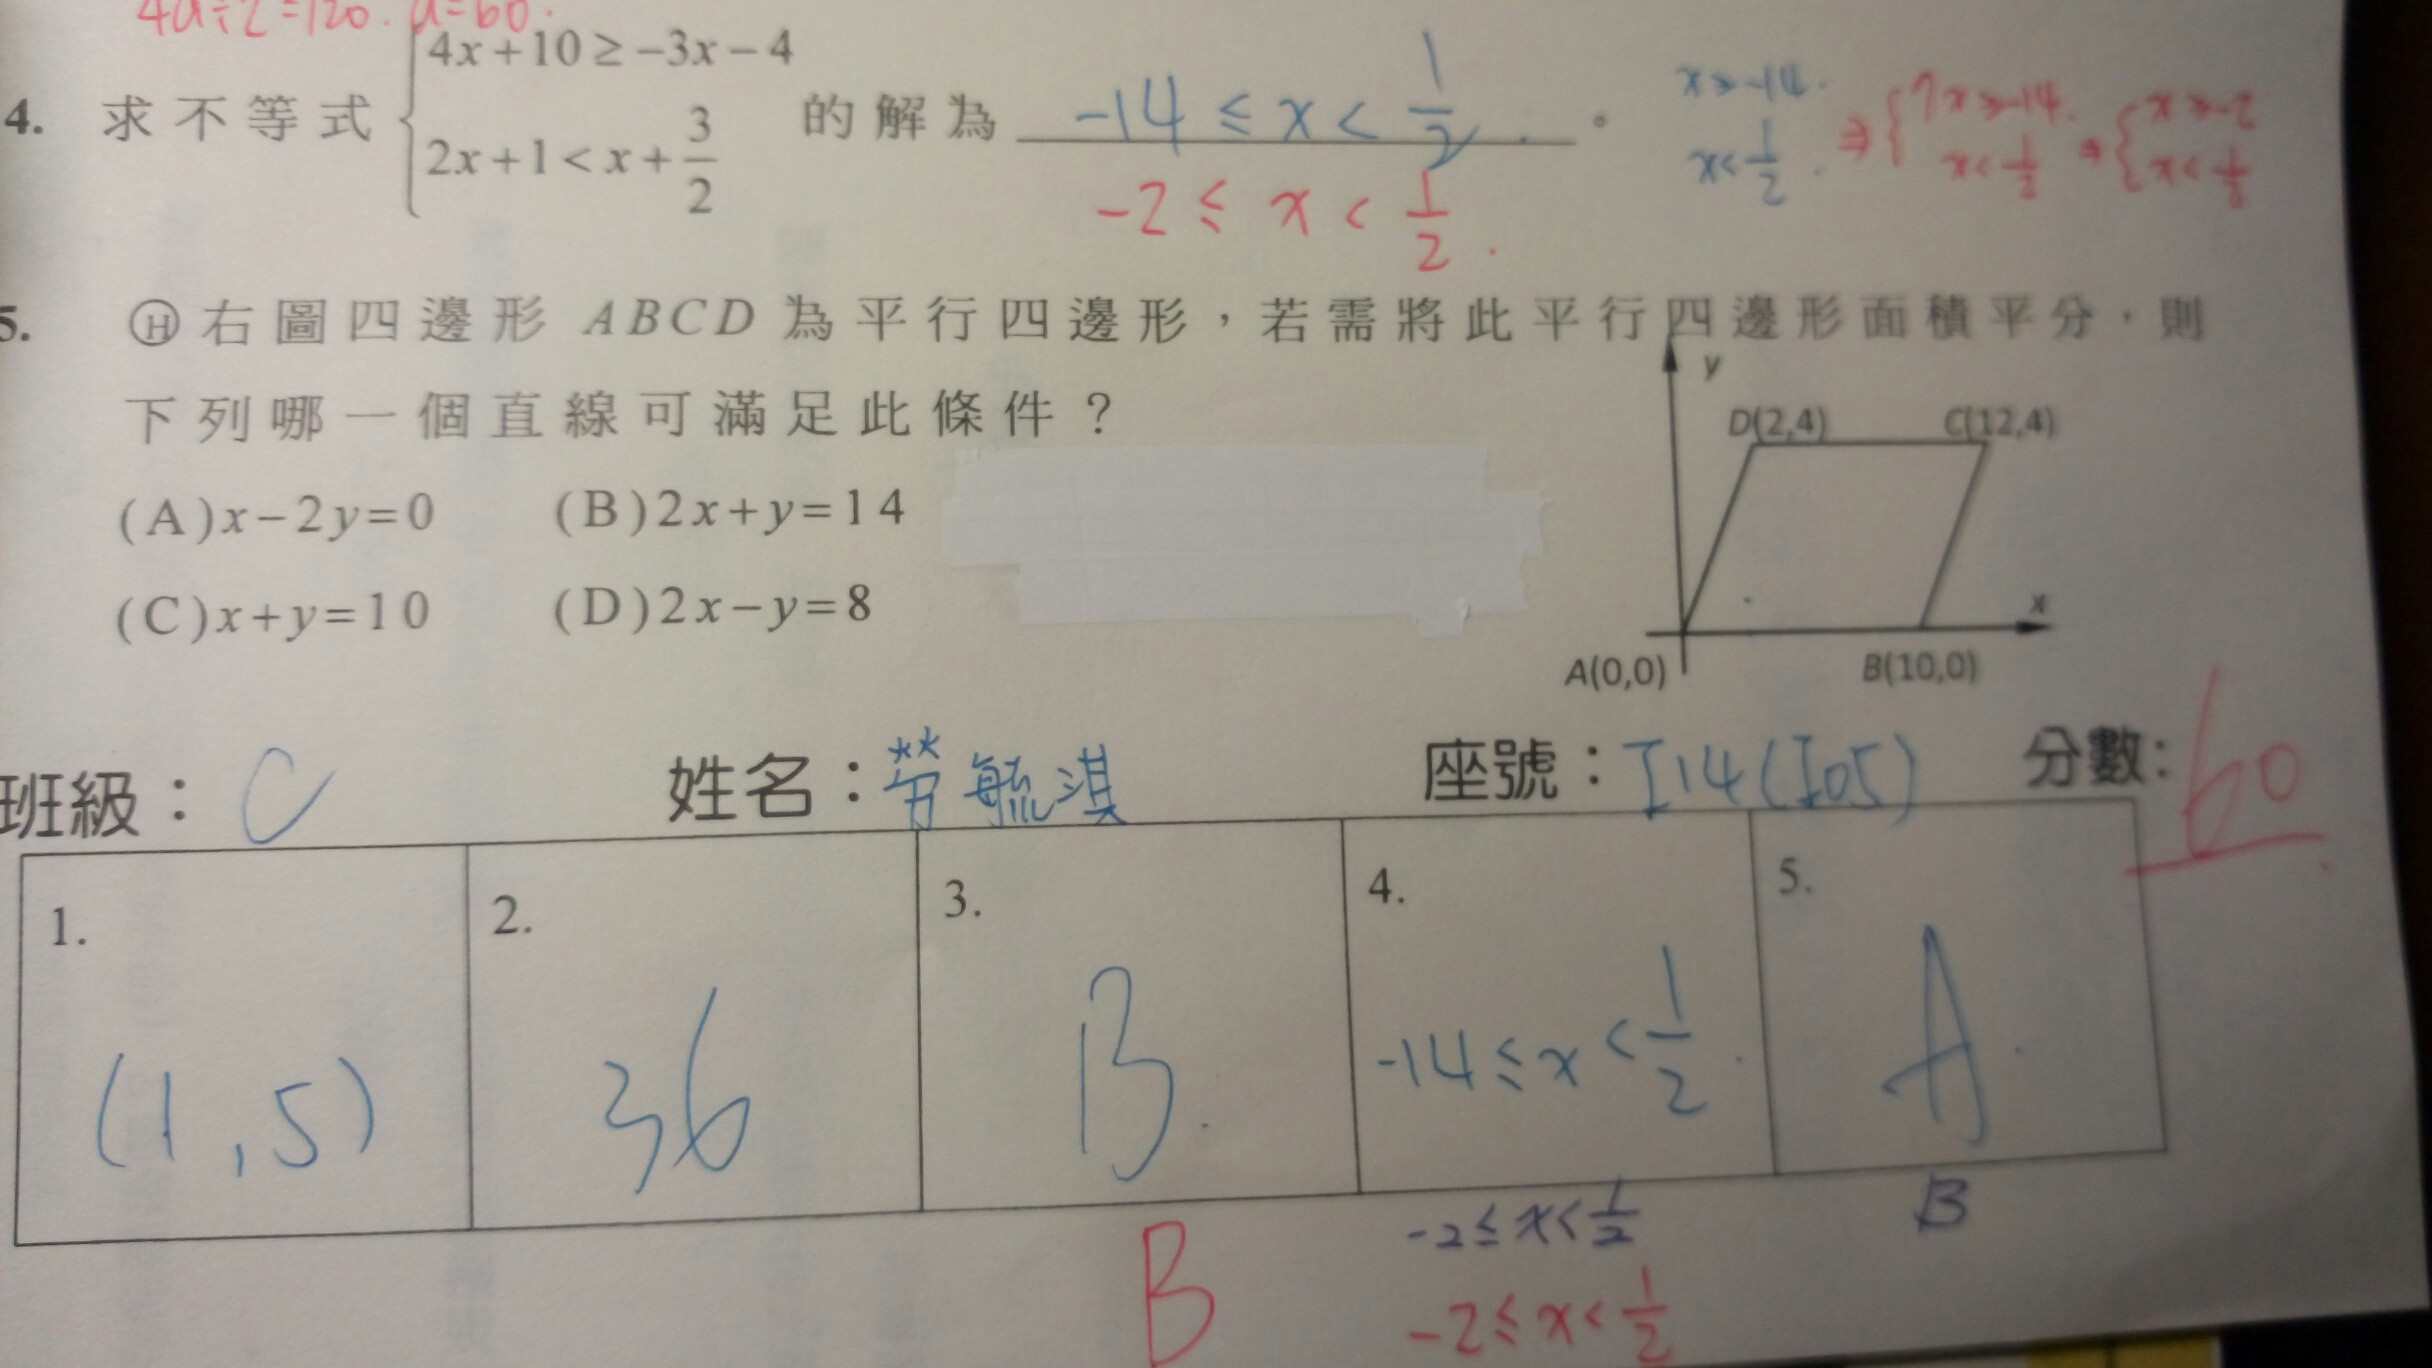 4a÷2=120. a=60.
4. 求不等式 { 4x+10≥-3x-4
2x+1<x+3/2 的解為 -14≤x<1/2.。
x≥-14.
x<1/2.
⇒{7x≥-14.
x<1/2
⇒{x≥-2
x<1/2
-2≤x<1/2.
5. Ⓗ右圖四邊形ABCD為平行四邊形,若需將此平行四邊形面積平分,則
下列哪一個直線可滿足此條件?
(A)x-2y=0 (B)2x+y=14
(C)x+y=10 (D)2x-y=8
y
D(2,4) C(12,4)
x
A(0,0) B(10,0)
班級:C 姓名:勞毓淇 座號:I14(I05) 分數:60
1. 2. 3. 4. 5.
(1,5) 36 B. -14≤x<1/2. A.
-2≤x<1/2 B
B -2≤x<1/2